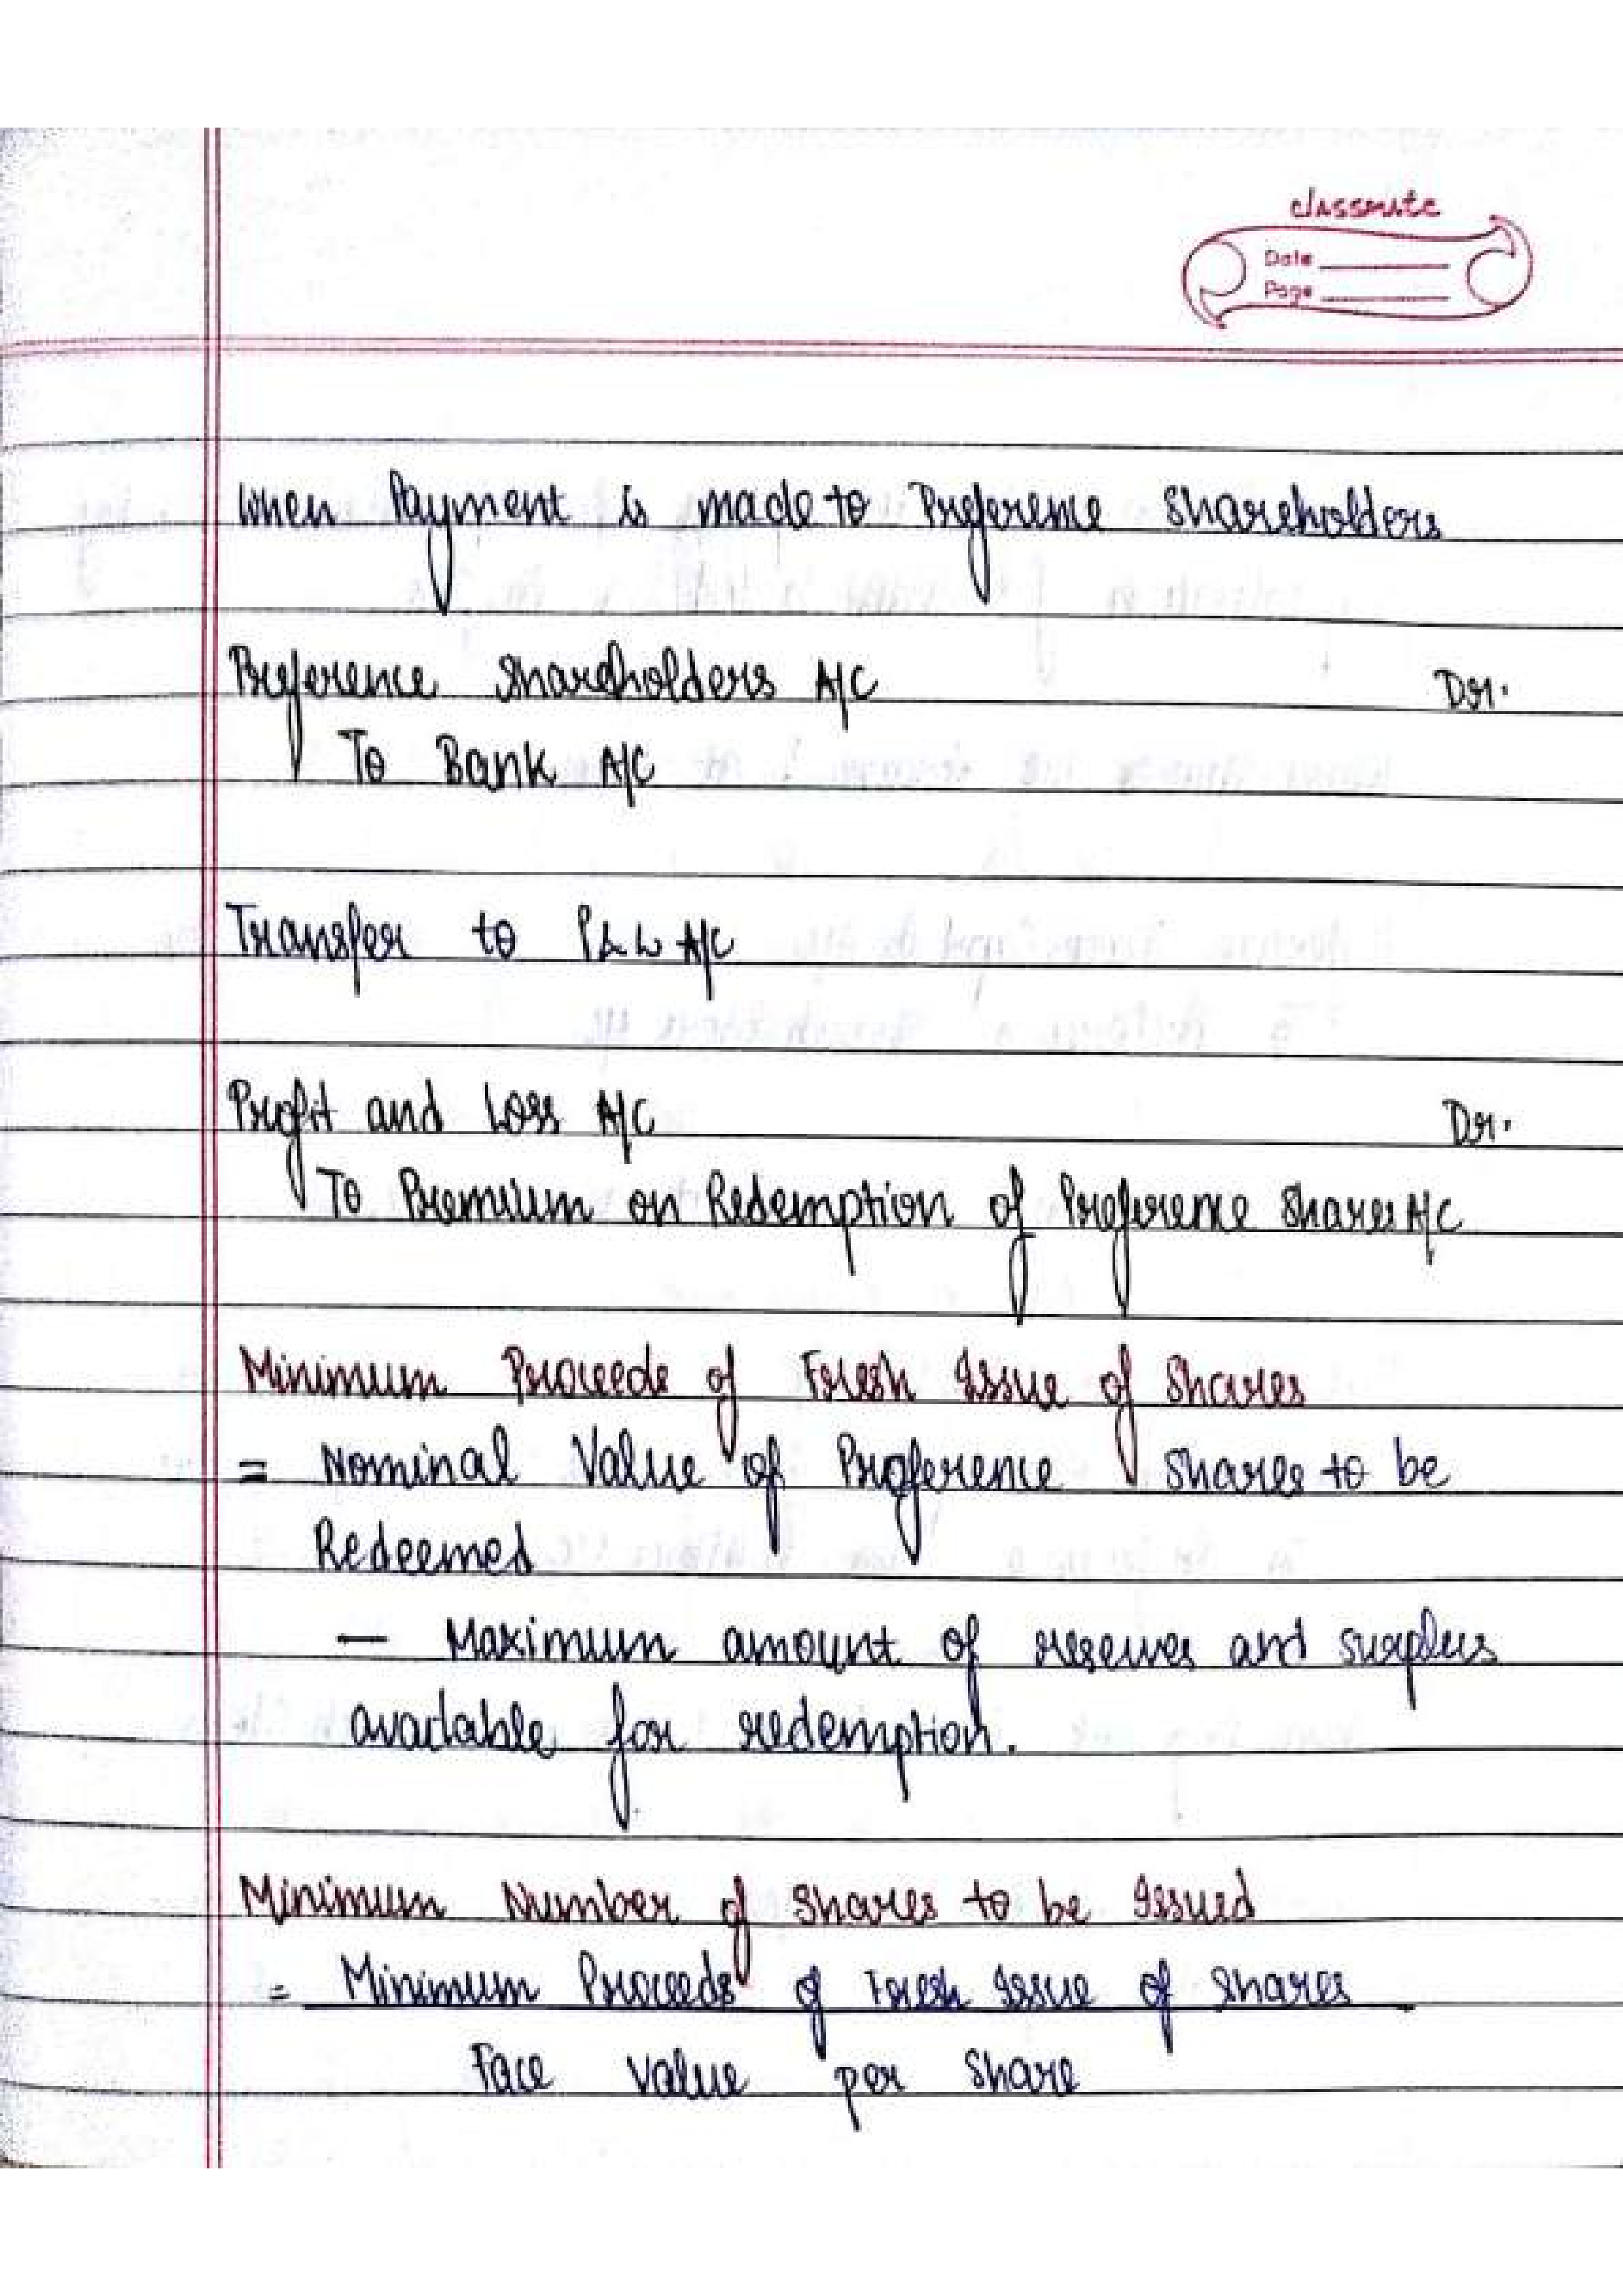 classmate
Date
Page
When Payment is made to Preference Shareholders
Preference Shareholders A/C Dr.
To Bank A/C
Transfer to P&L A/C
Profit and Loss A/C Dr.
To Premium on Redemption of Preference Shares A/C
Minimum Proceeds of Fresh Issue of Shares
= Nominal Value of Preference Shares to be
Redeemed
— Maximum amount of reserves and surplus
available for redemption.
Minimum Number of Shares to be Issued
= Minimum Proceeds of Fresh Issue of Shares
Face Value per Share